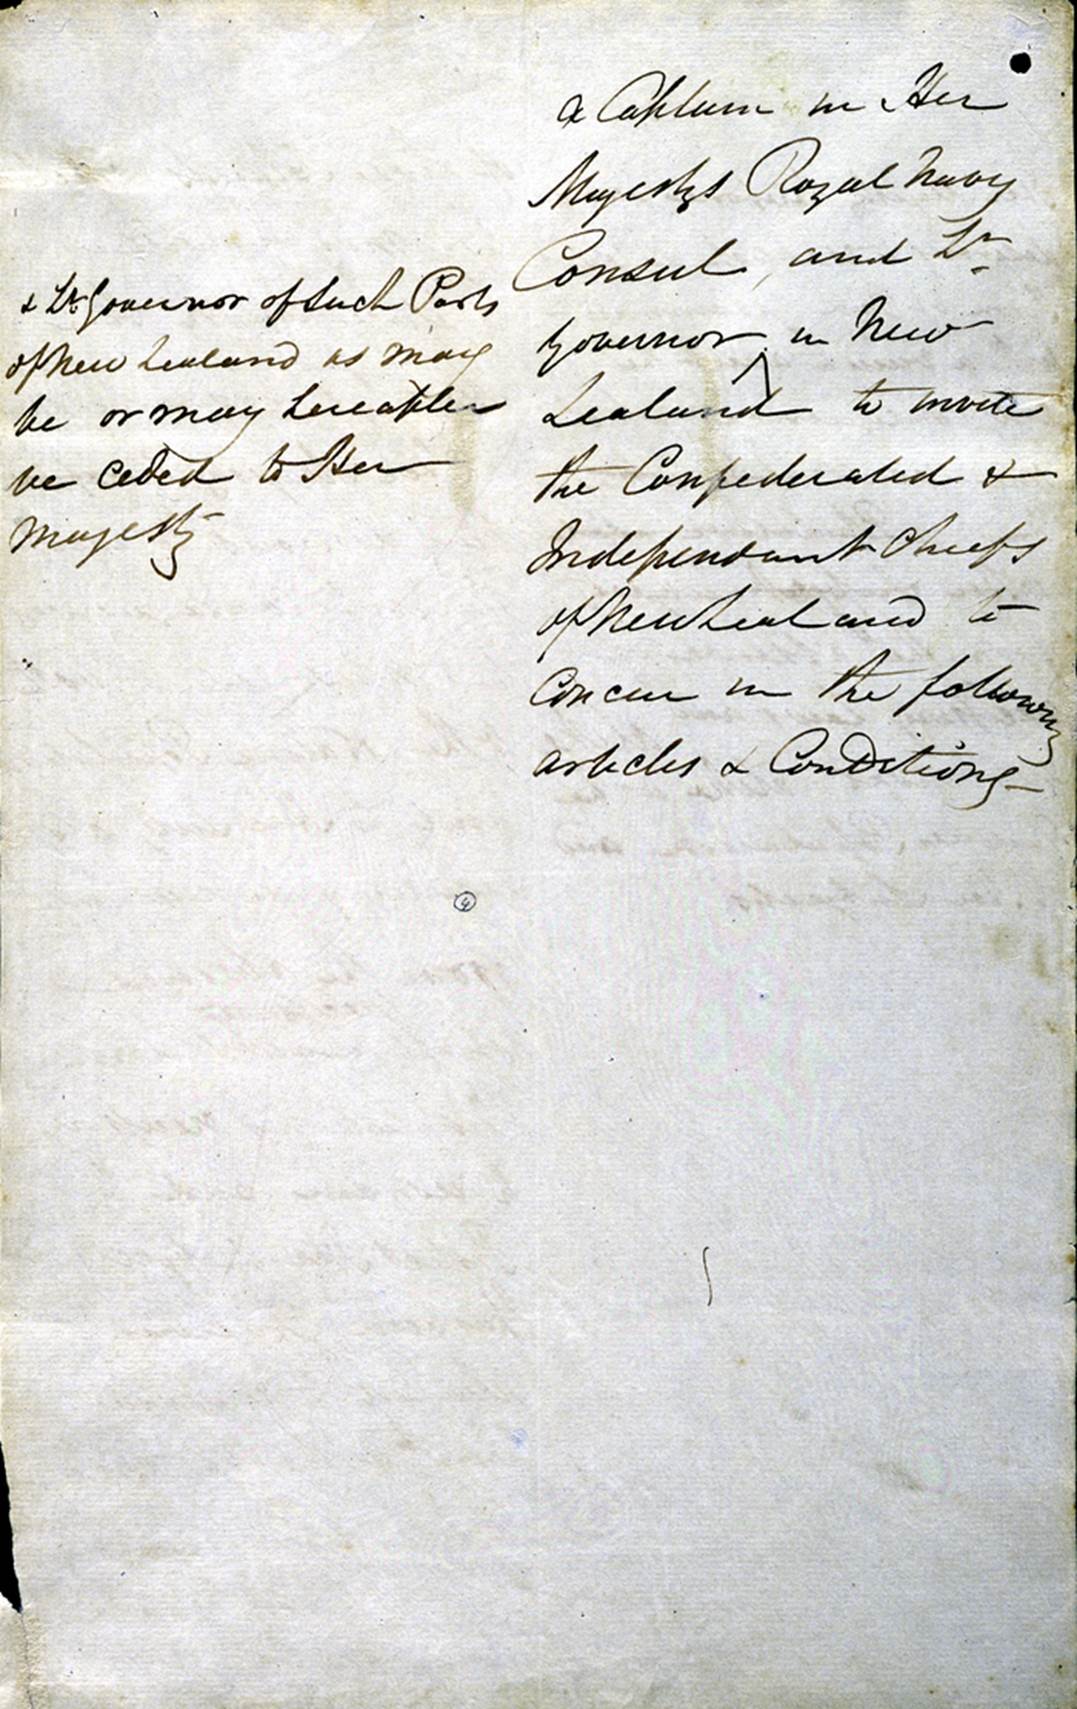 a Captain in Her
Majestys Royal Navy
Consul, and Lt.
Governor, in New
Zealand to invite
the Confederated &
Independant Chiefs
of New Zealand to
Concur in the following
articles & Conditions—
& Lt Governor of Such Parts
of New Zealand as may
be or may hereafter
be ceded to Her
Majesty
4